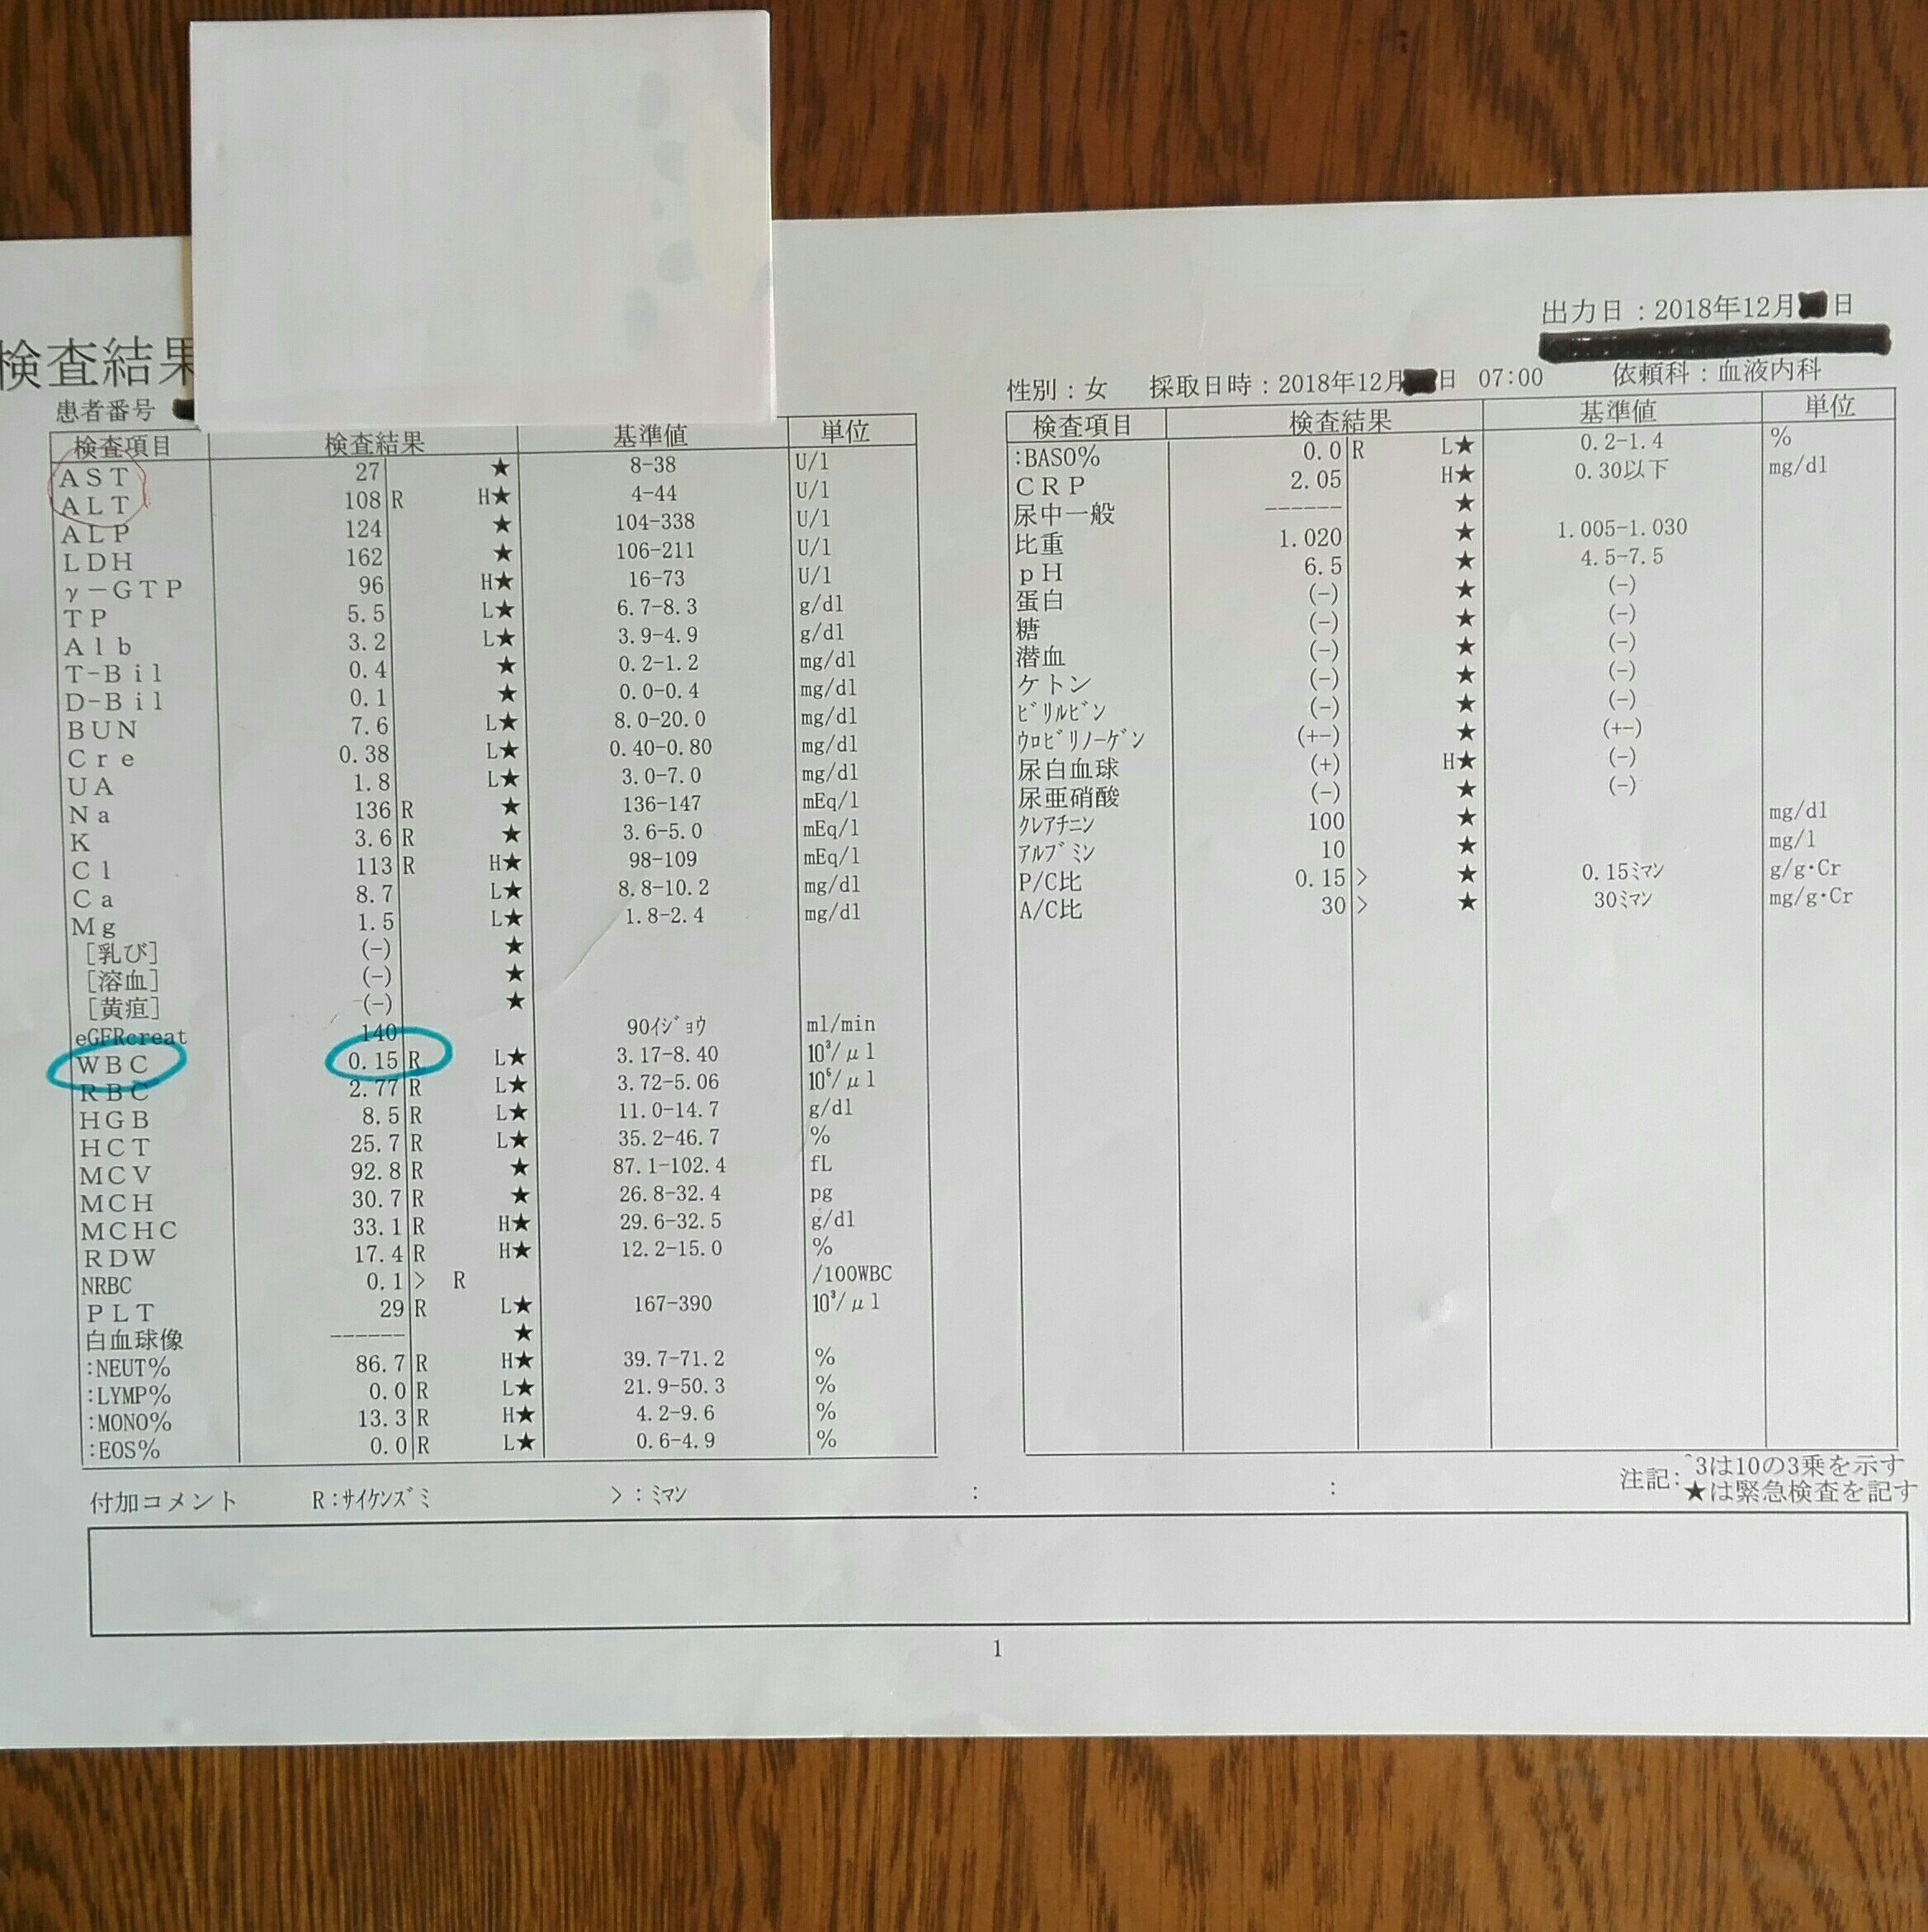 出力日：2018年12月 日
検査結果
性別：女 採取日時：2018年12月 日 07:00 依頼科：血液内科
患者番号
検査項目 検査結果 基準値 単位
AST 27 ★ 8-38 U/l
ALT 108 R H★ 4-44 U/l
ALP 124 ★ 104-338 U/l
LDH 162 ★ 106-211 U/l
γ－GTP 96 H★ 16-73 U/l
TP 5.5 L★ 6.7-8.3 g/dl
Alb 3.2 L★ 3.9-4.9 g/dl
T-Bil 0.4 ★ 0.2-1.2 mg/dl
D-Bil 0.1 ★ 0.0-0.4 mg/dl
BUN 7.6 L★ 8.0-20.0 mg/dl
Cre 0.38 L★ 0.40-0.80 mg/dl
UA 1.8 L★ 3.0-7.0 mg/dl
Na 136 R ★ 136-147 mEq/l
K 3.6 R ★ 3.6-5.0 mEq/l
Cl 113 R H★ 98-109 mEq/l
Ca 8.7 L★ 8.8-10.2 mg/dl
Mg 1.5 L★ 1.8-2.4 mg/dl
［乳び］ (-) ★
［溶血］ (-) ★
［黄疸］ (-) ★
eGFRcreat 140 90ｲｼﾞｮｳ ml/min
WBC 0.15 R L★ 3.17-8.40 10³/μl
RBC 2.77 R L★ 3.72-5.06 10⁶/μl
HGB 8.5 R L★ 11.0-14.7 g/dl
HCT 25.7 R L★ 35.2-46.7 %
MCV 92.8 R ★ 87.1-102.4 fL
MCH 30.7 R ★ 26.8-32.4 pg
MCHC 33.1 R H★ 29.6-32.5 g/dl
RDW 17.4 R H★ 12.2-15.0 %
NRBC 0.1 > R /100WBC
PLT 29 R L★ 167-390 10³/μl
白血球像 ------ ★
:NEUT% 86.7 R H★ 39.7-71.2 %
:LYMP% 0.0 R L★ 21.9-50.3 %
:MONO% 13.3 R H★ 4.2-9.6 %
:EOS% 0.0 R L★ 0.6-4.9 %
検査項目 検査結果 基準値 単位
:BASO% 0.0 R L★ 0.2-1.4 %
CRP 2.05 H★ 0.30以下 mg/dl
尿中一般 ------ ★
比重 1.020 ★ 1.005-1.030
pH 6.5 ★ 4.5-7.5
蛋白 (-) ★ (-)
糖 (-) ★ (-)
潜血 (-) ★ (-)
ケトン (-) ★ (-)
ﾋﾞﾘﾙﾋﾞﾝ (-) ★ (-)
ｳﾛﾋﾞﾘﾉｰｹﾞﾝ (+-) ★ (+-)
尿白血球 (+) H★ (-)
尿亜硝酸 (-) ★ (-)
ｸﾚｱﾁﾆﾝ 100 ★ mg/dl
ｱﾙﾌﾞﾐﾝ 10 ★ mg/l
P/C比 0.15 > ★ 0.15ﾐﾏﾝ g/g･Cr
A/C比 30 > ★ 30ﾐﾏﾝ mg/g･Cr
付加コメント R：ｻｲｹﾝｽﾞﾐ >：ﾐﾏﾝ : :
注記：^3は10の3乗を示す
★は緊急検査を記す
1